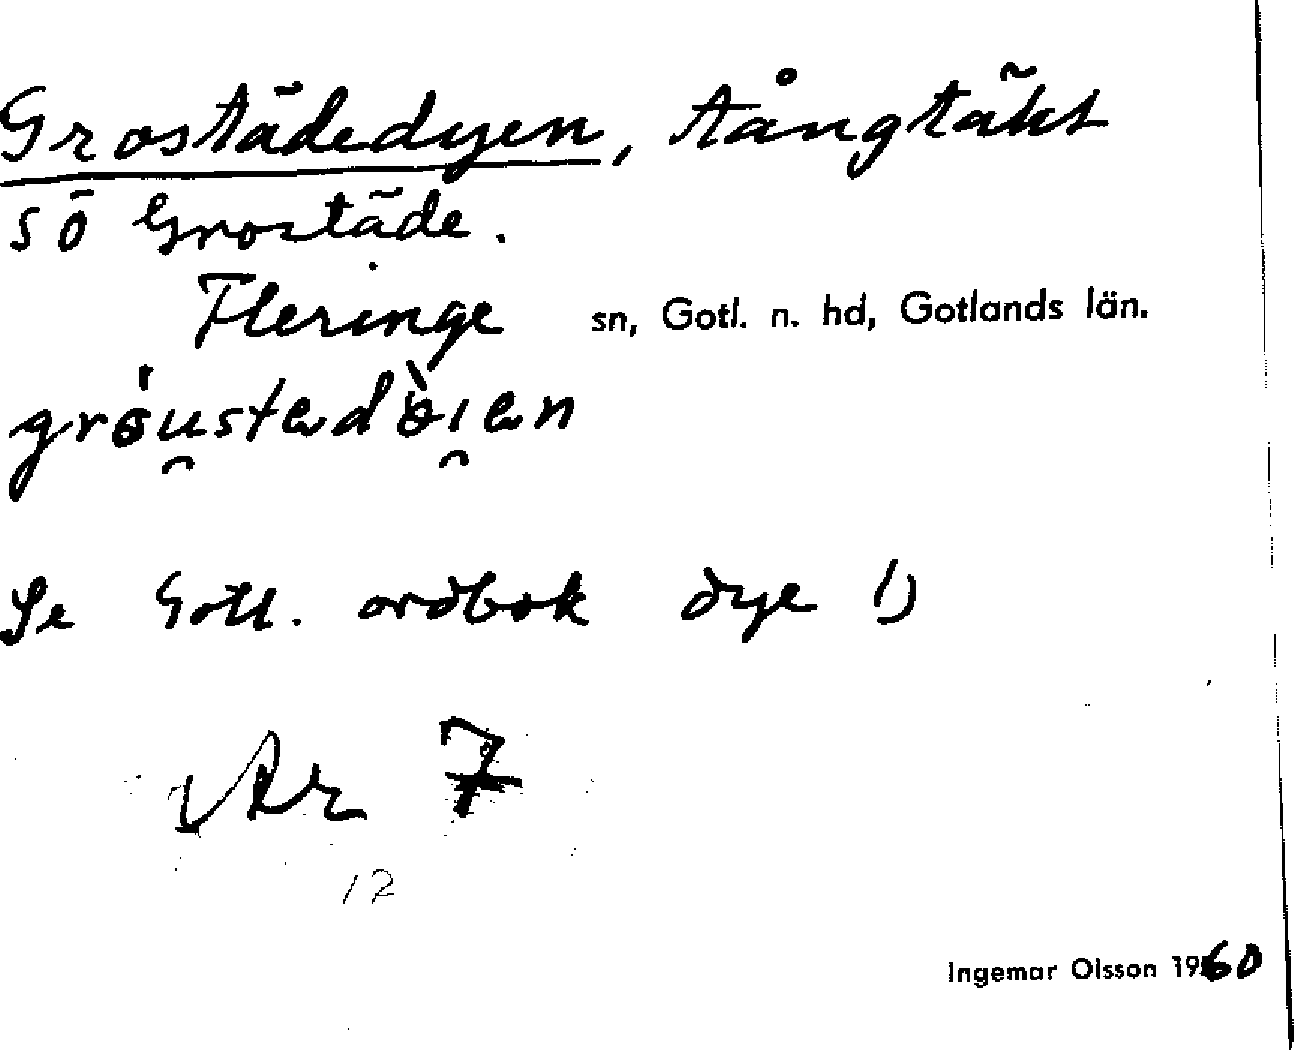 Grostädedyen, tångtäkt
SÖ Grostäde.
Fleringe sn, Gotl. n. hd, Gotlands län.
Se Gotl. ordbok dye 1)
Nr 7
17
Ingemar Olsson 1960